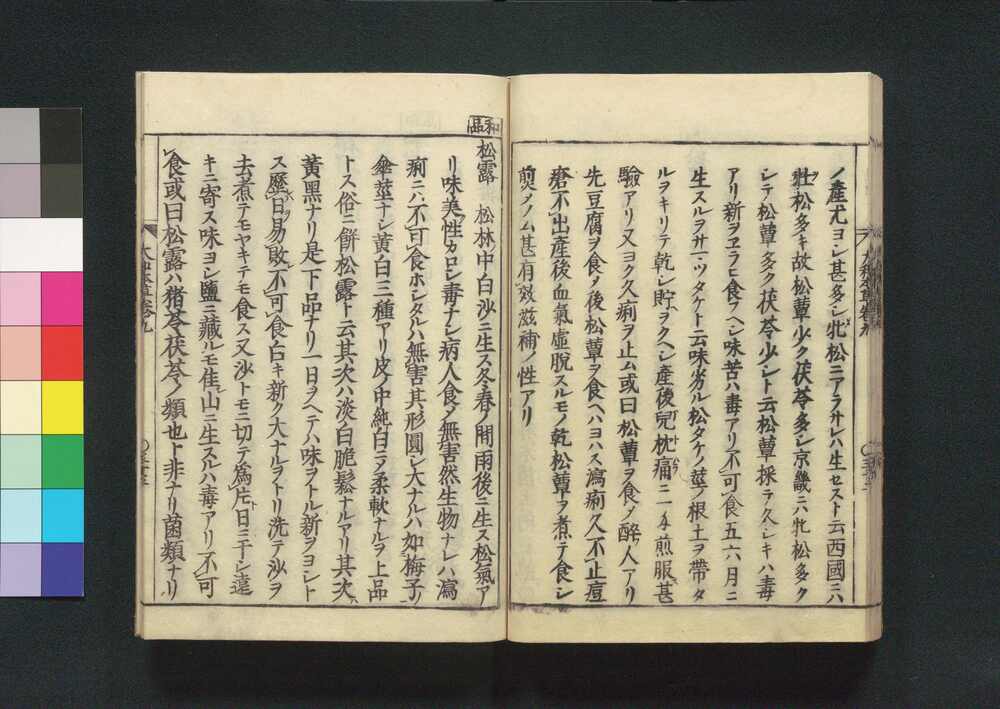 ノ産尤ヨシ甚多シ牝松ニアラサレハ生セスト云西國ニハ
牡松多キ故松蕈少ク茯苓多シ京畿ニハ牝松多ク
シテ松蕈多ク茯苓少シト云松蕈採テ久シキハ毒
アリ新ヲヱラヒ食フヘシ味苦ハ毒アリ不可食五六月ニ
生スルヲサマツタケト云味劣ル松タケノ莖ノ根土ヲ帶タ
ルヲキリテ乾シ貯ヲクヘシ産後兒枕痛ニ一味煎服甚
驗アリ又ヨク久痢ヲ止ム或曰松蕈ヲ食ノ醉人アリ
先豆腐ヲ食ノ後松蕈ヲ食ヘハヨハス瀉痢久不止痘
瘡不出産後血氣虚脱スルモノ乾松蕈ヲ煮テ食シ
煎メノム甚有效滋補ノ性アリ
和品
松露 松林ノ中白沙ニ生ス冬春ノ間雨後ニ生ス松氣ア
リ味美性カロシ毒ナシ病人食ノ無害然生物ナレハ瀉
痢ニハ不可食ホシタルハ無害其形圓シ大ナルハ如梅子
傘莖ナシ黄白三種アリ皮ノ中純白ニ乄柔軟ナルヲ上品
トス俗ニ餅松露ト云其次ハ淡白脆鬆ナルアリ其次ハ
黄黒ナリ是下品ナリ一日ヲヘテハ味ヲトル新ヲヨシト
ス歴日易敗不可食白キ新ク大ナルヲトリ洗テ沙ヲ
去煮テモヤキテモ食ス又沙トモニ切テ爲片日ニ干シ遠
キニ寄ス味ヨシ鹽ニ藏ルモ佳山ニ生スルハ毒アリ不可
食或曰松露ハ猪苓茯苓ノ類也ト非ナリ菌類ナリ
大和本草卷九